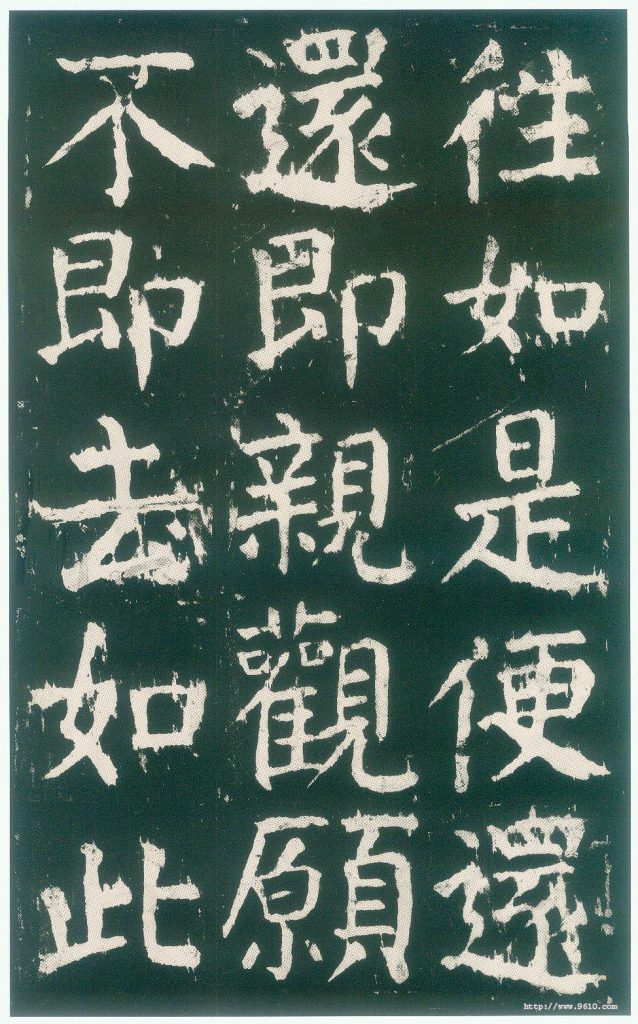 往如是便還
還即親觀願
不即去如此
http://www.9610.com